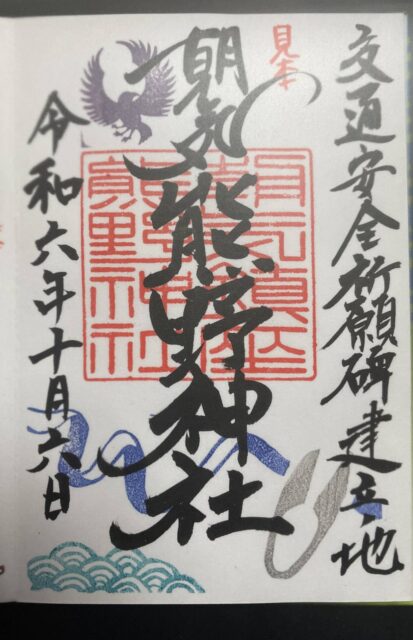 交通安全祈願碑建立地
見本
朝気熊野神社
令和六年十月六日